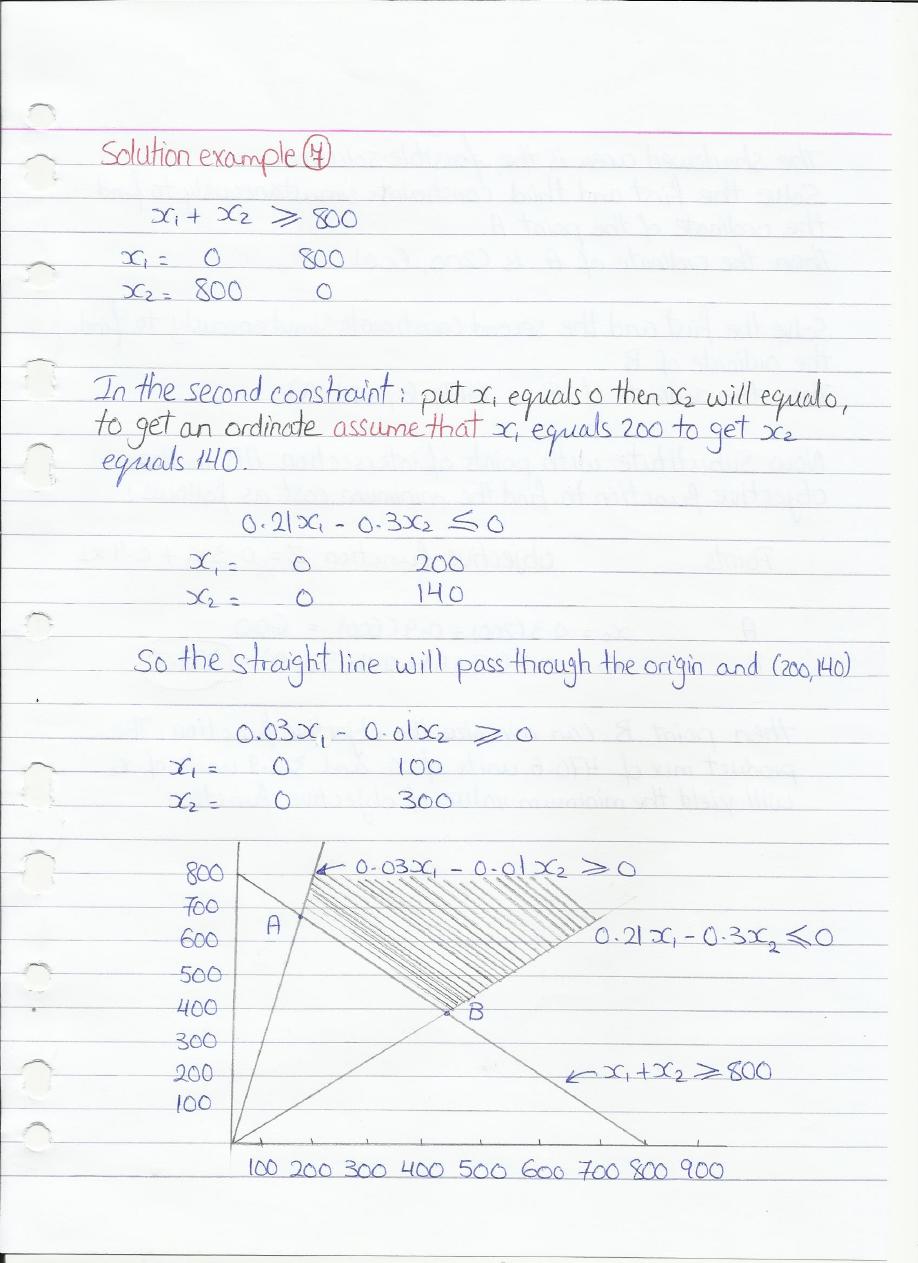 Solution example ⑦
x₁ + x₂ ≥ 800
x₁ = 0 800
x₂ = 800 0
In the second constraint: put x₁ equals 0 then x₂ will equal 0,
to get an ordinate assume that x₁ equals 200 to get x₂
equals 140.
0.21x₁ - 0.3x₂ ≤ 0
x₁ = 0 200
x₂ = 0 140
So the straight line will pass through the origin and (200,140)
0.03x₁ - 0.01x₂ ≥ 0
x₁ = 0 100
x₂ = 0 300
800
← 0.03x₁ - 0.01x₂ ≥ 0
700
A
600
0.21x₁ - 0.3x₂ ≤ 0
500
400
B
300
200
← x₁ + x₂ ≥ 800
100
100 200 300 400 500 600 700 800 900